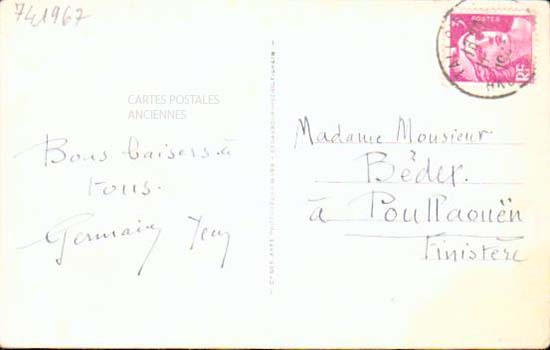 741967
POSTES
RF
CARTES POSTALES
ANCIENNES
Bons baisers à
tous.
Germain
Madame Monsieur
à Poullaouën
Finistère